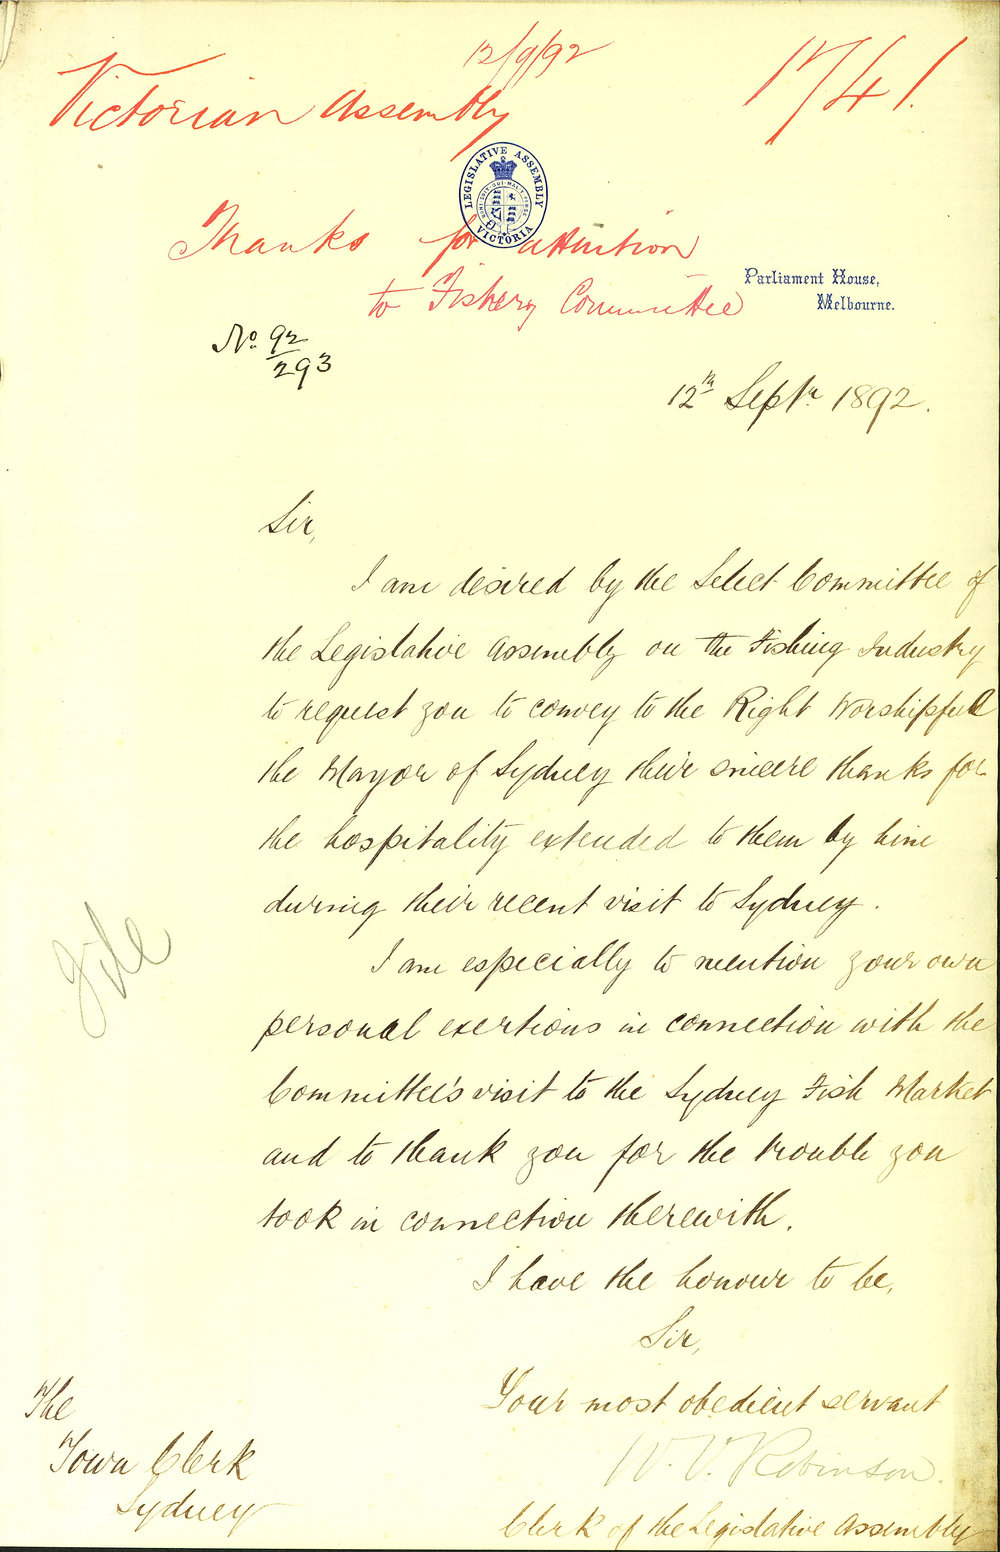 12/9/92
Victorian Assembly
1741.
LEGISLATIVE ASSEMBLY VICTORIA
Thanks for attention
to Fishery Committee
Parliament House,
Melbourne.
No. 92/293
12th Septr. 1892.
Sir,
I am desired by the Select Committee of
the Legislative Assembly on the Fishing Industry
to request you to convey to the Right Worshipful
the Mayor of Sydney their sincere thanks for
the hospitality extended to them by him
during their recent visit to Sydney.
I am especially to mention your own
personal exertions in connection with the
Committee's visit to the Sydney Fish Market
and to thank you for the trouble you
took in connection therewith.
File
I have the honour to be,
Sir,
Your most obedient servant
W. V. Robinson.
Clerk of the Legislative Assembly
The
Town Clerk
Sydney